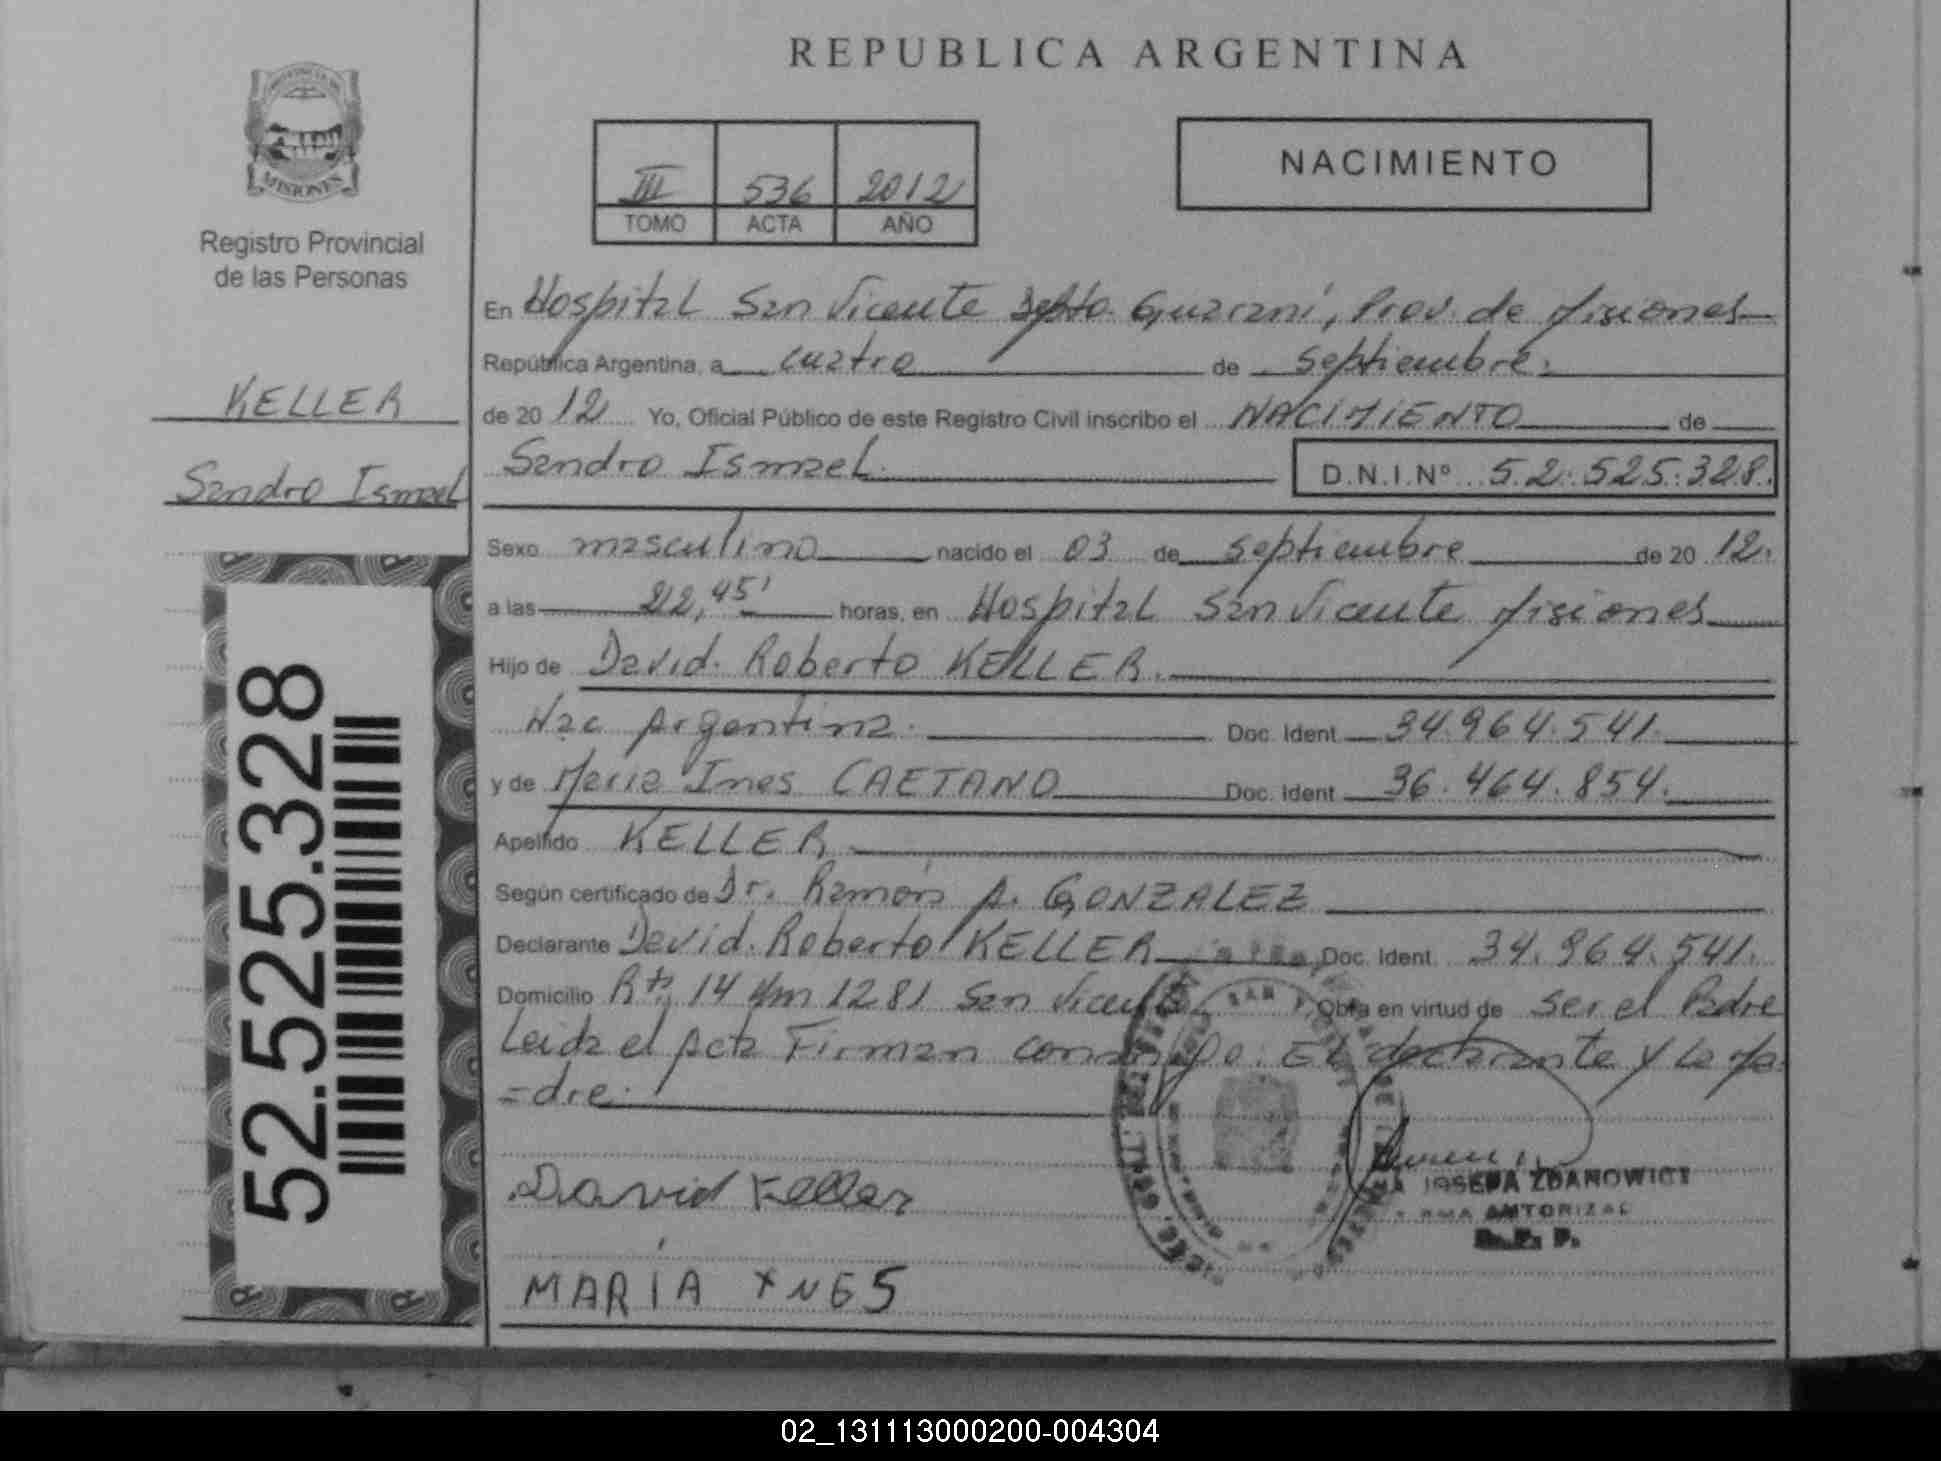 REPUBLICA ARGENTINA
PROVINCIA DE
MISIONES
Registro Provincial
de las Personas
III 536 2012
TOMO ACTA AÑO
NACIMIENTO
KELLER
Sandro Ismael
52.525.328
En Hospital San Vicente Depto. Guaraní, Prov. de Misiones
República Argentina, a cuatro de septiembre.
de 20 12 Yo, Oficial Público de este Registro Civil inscribo el NACIMIENTO de
Sandro Ismael. D.N.I.Nº 52.525.328.
Sexo masculino nacido el 03 de septiembre de 20 12.
a las 22,45' horas, en Hospital San Vicente Misiones
Hijo de David. Roberto KELLER.
Nac Argentina. Doc. Ident 34.964.541.
y de Maria Ines CAETANO Doc. Ident 36.464.854.
Apellido KELLER
Según certificado de Dr. Ramón A. GONZALEZ
Declarante David. Roberto KELLER Doc. Ident. 34.964.541.
Domicilio Rta 14 Km 1281 San Vicente Obra en virtud de ser el Padre
Leida el Acta Firman conmigo. El declarante y la Ma
=dre.
David Keller
MARÍA INES
JOSEFA ZDANOWICZ
R. P. P.
02_131113000200-004304